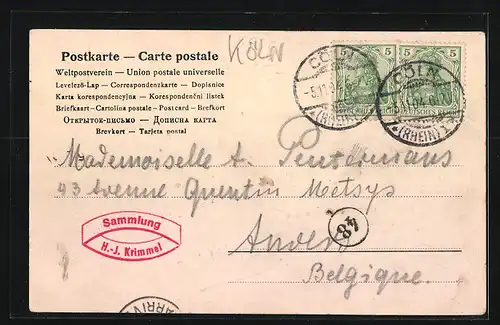 Postkarte — Carte postale
KÖLN
Weltpostverein — Union postale universelle
Levelező-Lap — Correspondenzkarte — Dopisnice
Karta korespondencyjna — Korespondenční lístek
Briefkaart — Cartolina postale — Postcard — Brefkort
Открытое-письмо — Дописна карта
Brevkort — Tarjeta postal
5 5 5
CÖLN
(RHEIN)
CÖLN
*(RHEIN)
Mademoiselle A.
43 Avenue Quentin Metsys
Anvers
Belgique.
Sammlung
H.-J. Krimmel
48
ARRIV